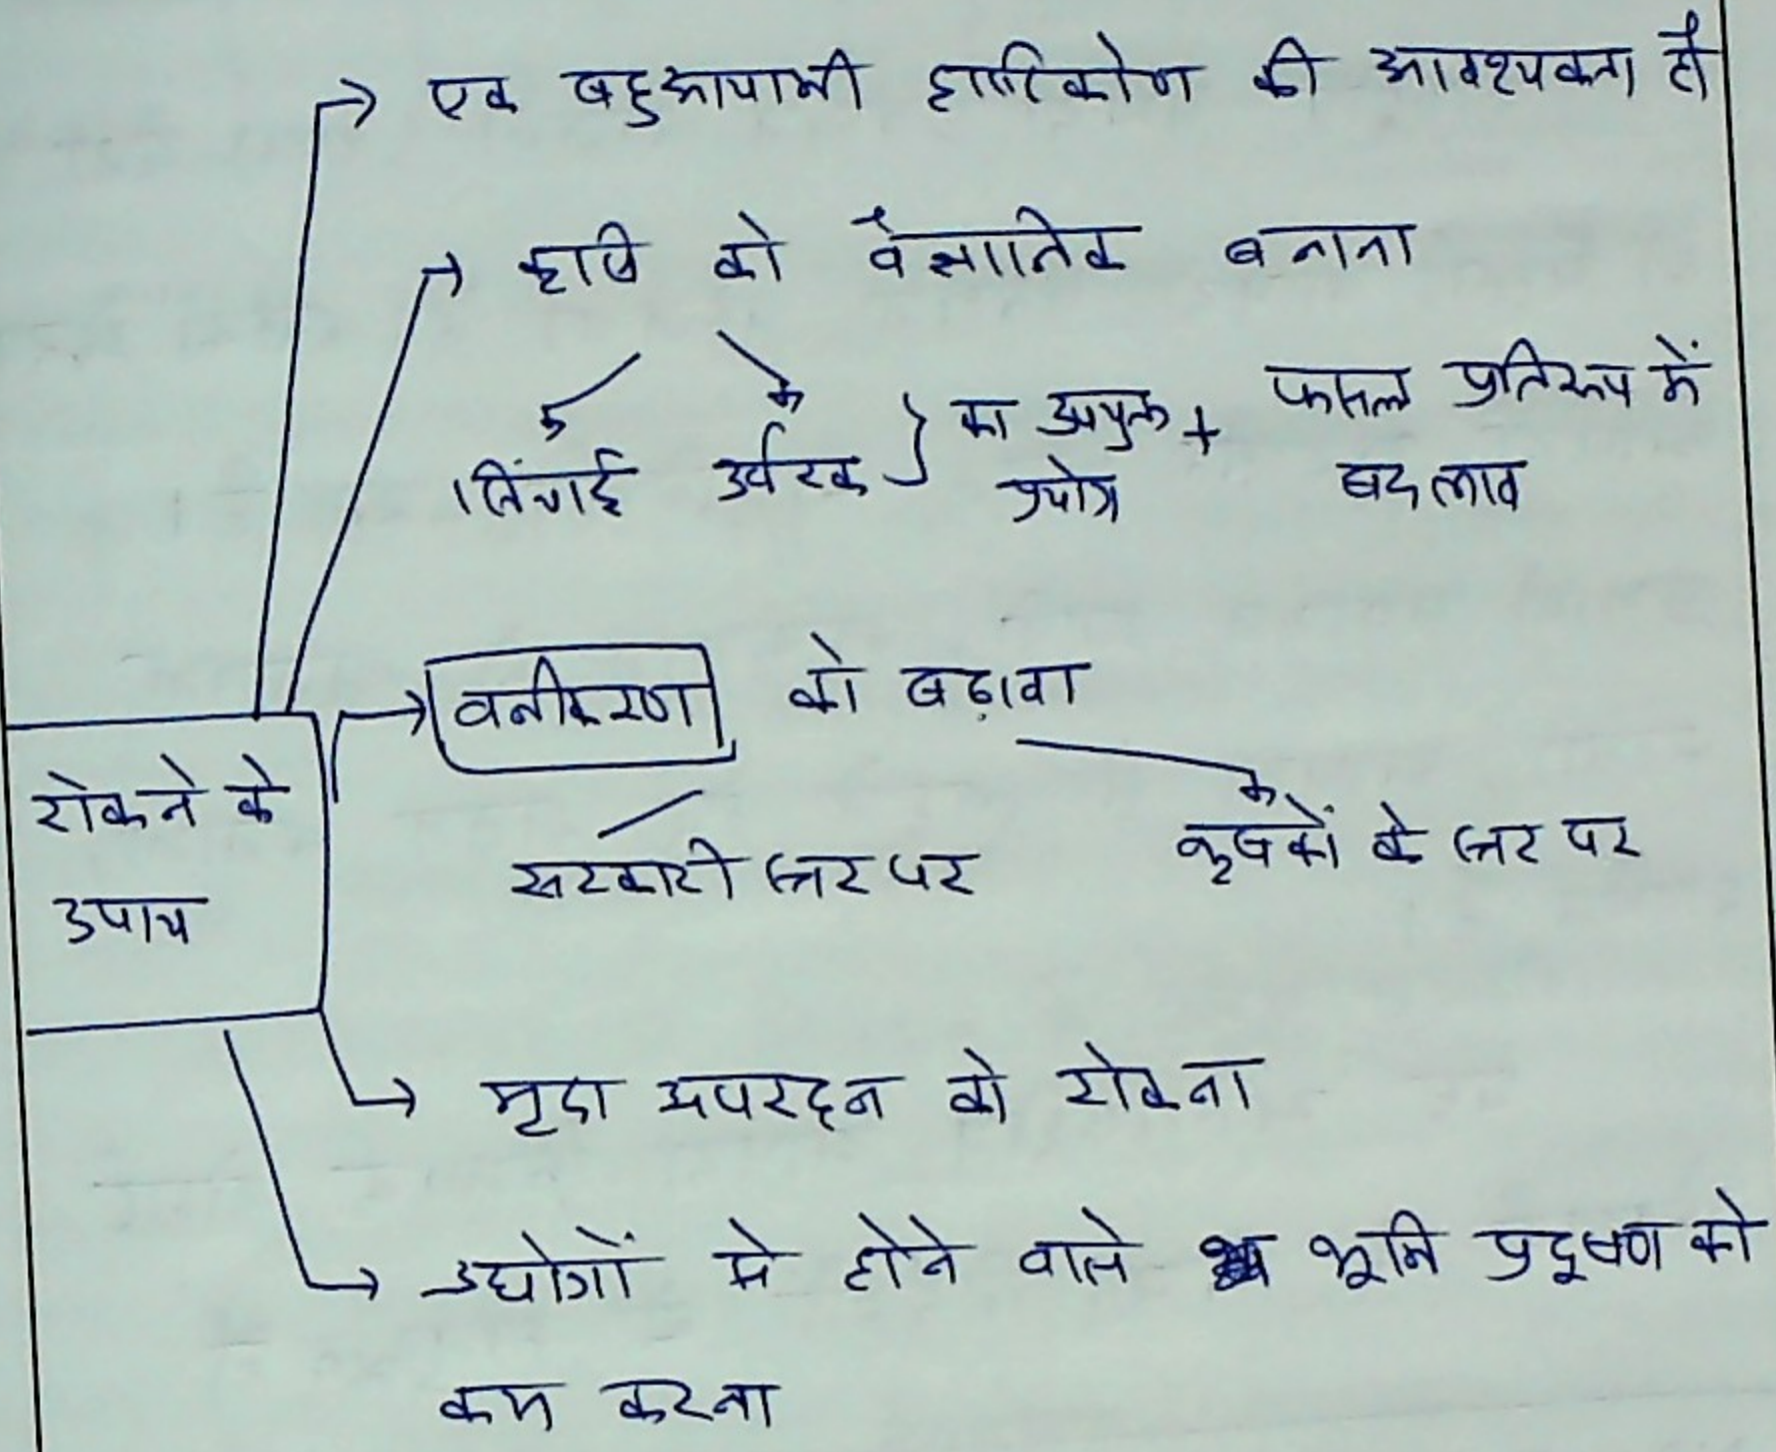 एक बहुआयामी दृष्टिकोण की आवश्यकता है
कृषि को वैज्ञानिक बनाना
सिंचाई उर्वरक } का उपयुक्त + फसल प्रतिरूप में
प्रयोग बदलाव
वनीकरण को बढ़ावा
रोकने के
उपाय
सरकारी स्तर पर कृषकों के स्तर पर
मृदा अपरदन को रोकना
उद्योगों से होने वाले भूमि प्रदूषण को
कम करना